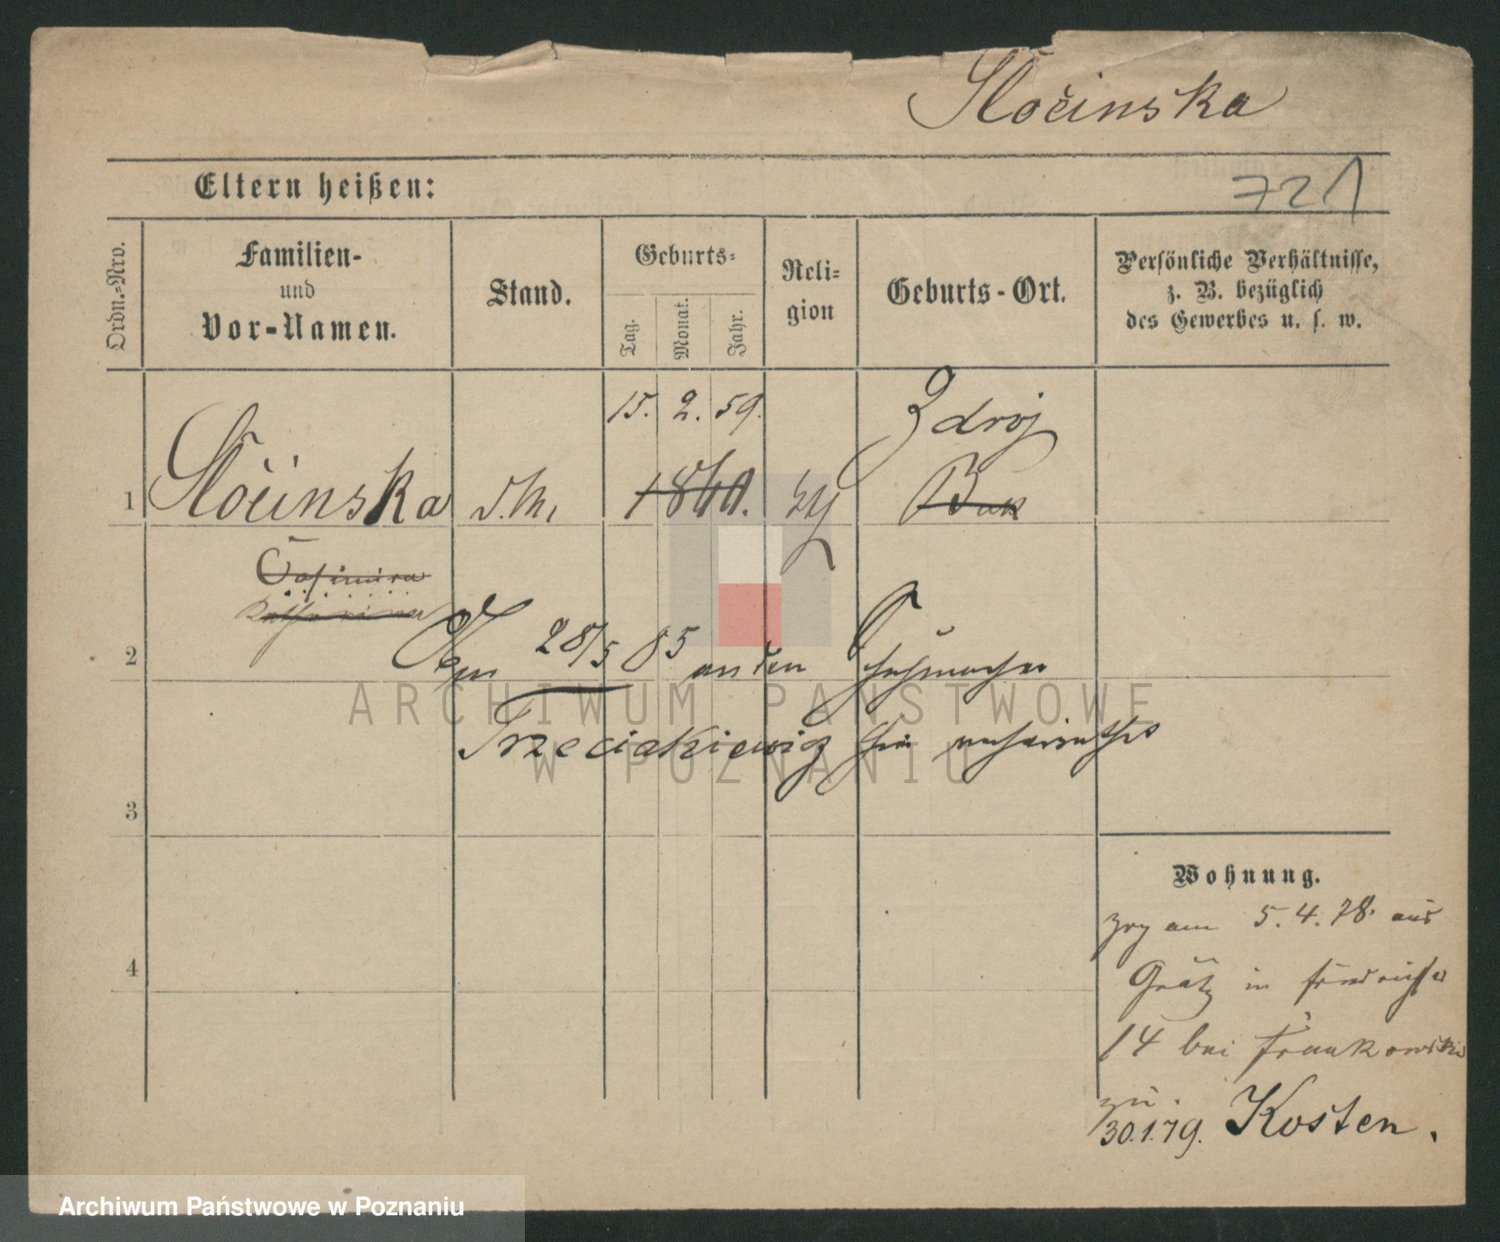 Słocinska
721
Eltern heißen:
Ordn.-Nro.
Familien-
und
Vor-Namen.
Stand.
Geburts-
Tag.
Monat.
Jahr.
Reli-
gion
Geburts-Ort.
Persönliche Verhältnisse,
z. B. bezüglich
des Gewerbes u. s. w.
15. 2. 59. Zdroj
1 Słocinska d.M. 1860. Buk
Casimira
Katharina
2
28/5 85 an den Schuhmacher
Trzeciakiewicz hier verheirathet
ARCHIWUM PAŃSTWOWE
W POZNANIU
3
Wohnung.
zog am 5.4.78. aus
4
Grätz in
14 bei Frankowski
zu.
30.1.79. Kosten.
Archiwum Państwowe w Poznaniu